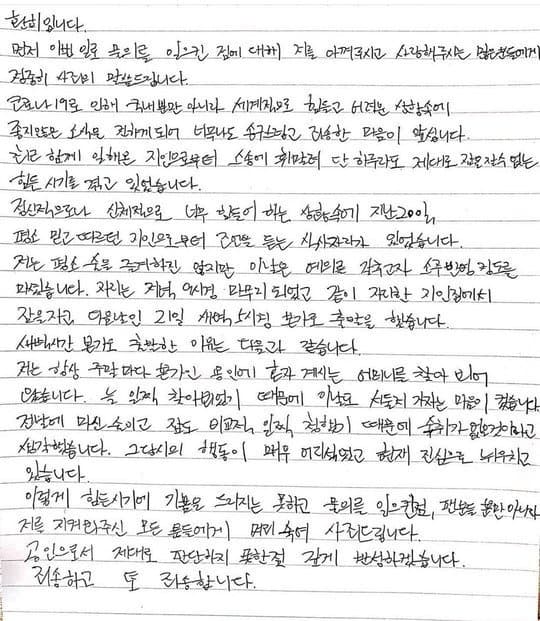 환희입니다.
먼저 이번 일로 물의를 일으킨 점에 대해 저를 아껴주시고 사랑해주시는 많은분들에게
정중히 사죄의 말씀드립니다.
코로나19로 인해 국내뿐만 아니라 세계적으로 힘들고 어려운 상황속에
좋지않은 소식을 전하게되어 너무나도 송구스럽고 죄송한 마음이 앞섭니다.
최근 함께 일해온 지인으로부터 소송에 휘말려 단 하루라도 제대로 잠을 잘수 없는
힘든 시기를 겪고 있었습니다.
정신적으로나 신체적으로 너무 힘들어 하는 상황속에 지난 20일,
평소 믿고 따르던 지인으로부터 조언을 듣는 식사자리가 있었습니다.
저는 평소 술을 즐겨하진 않지만 이날은 예의를 갖추고자 소주 반병 정도를
마셨습니다. 자리는 저녁 9시경 마무리 되었고 같이 자리한 지인집에서
잠을자고 다음날인 21일 새벽 5시경 본가로 출발을 했습니다.
새벽시간 본가로 출발한 이유는 다음과 같습니다.
저는 항상 주말마다 본가인 용인에 혼자 계시는 어머니를 찾아 뵈어
왔습니다. 늘 일찍 찾아뵈었기 때문에 이날도 서둘러 가자는 마음이 컸습니다
전날에 마신 술이고 잠도 비교적 일찍 청했기 때문에 숙취가 없을것이라고
생각했습니다. 그당시의 행동이 매우 어리석었고 현재 진심으로 뉘우치고
있습니다.
이렇게 힘든시기에 기쁨을 드리지는 못하고 물의를 일으킨점, 팬분들 뿐만 아니라
저를 지켜봐주신 모든 분들에게 머리 숙여 사죄드립니다.
공인으로서 제대로 판단하지 못한점 깊게 반성하겠습니다.
죄송하고 또 죄송합니다.